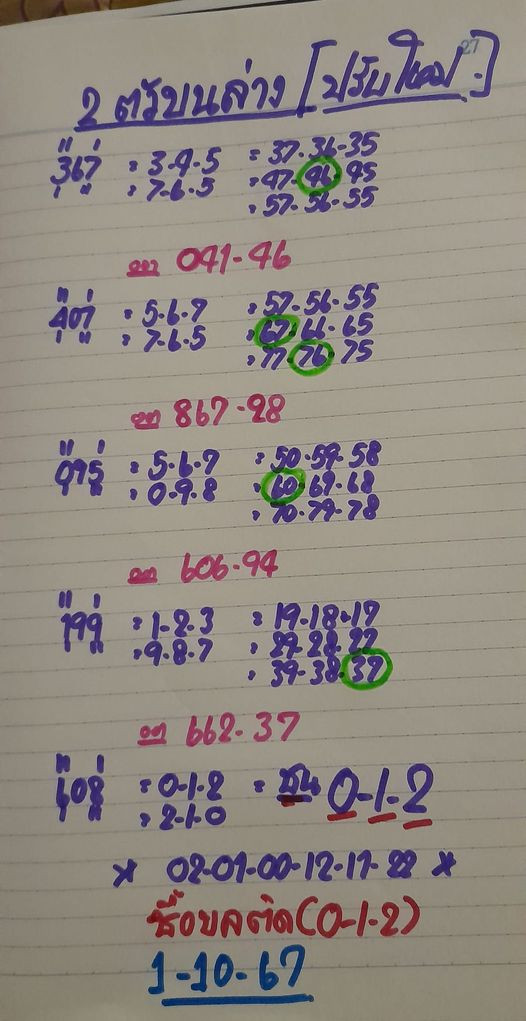 27
2 ตัวบนล่าง [ปรับใหม่.]
367 : 3-4-5 = 37-36-35
: 7-6-5 = 47-46-45
= 57-56-55
041-46
407 : 5-6-7 = 57-56-55
: 7-6-5 = 67-66-65
= 77-76-75
867-28
095 : 5-6-7 = 50-59-58
: 0-9-8 = 60-69-68
= 70-79-78
606-94
199 : 1-2-3 = 19-18-17
: 9-8-7 = 29-28-27
= 39-38-37
ออก 662-37
108 : 0-1-2 = ชน 0-1-2
: 2-1-0
* 02-01-00-12-11-22 *
(0-1-2)
1-10-67